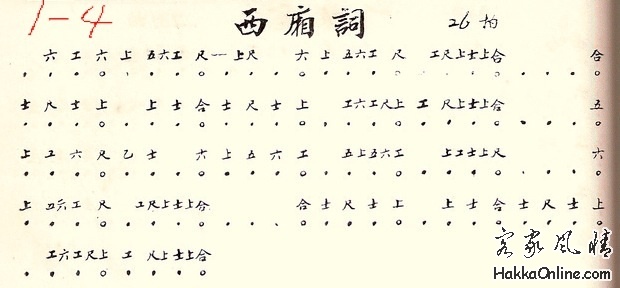 1-4 西廂詞 26拍
六 工 六 上 五六工 尺一上尺 六 上 五六工 尺 工尺上士上合 合
士 尺 士 上 上 士 合 士 尺 士 上 工六工尺上 工 尺上士上合 五
上 五 六 尺 乙 士 六 上 五 六 工 五上五六工 上工士上尺 六
上 五六工 尺 工尺上士上合 合 士 尺 士 上 上 士 合 士 尺 士 上
工六工尺上 工 尺上士上合
客家風情
HakkaOnline.com